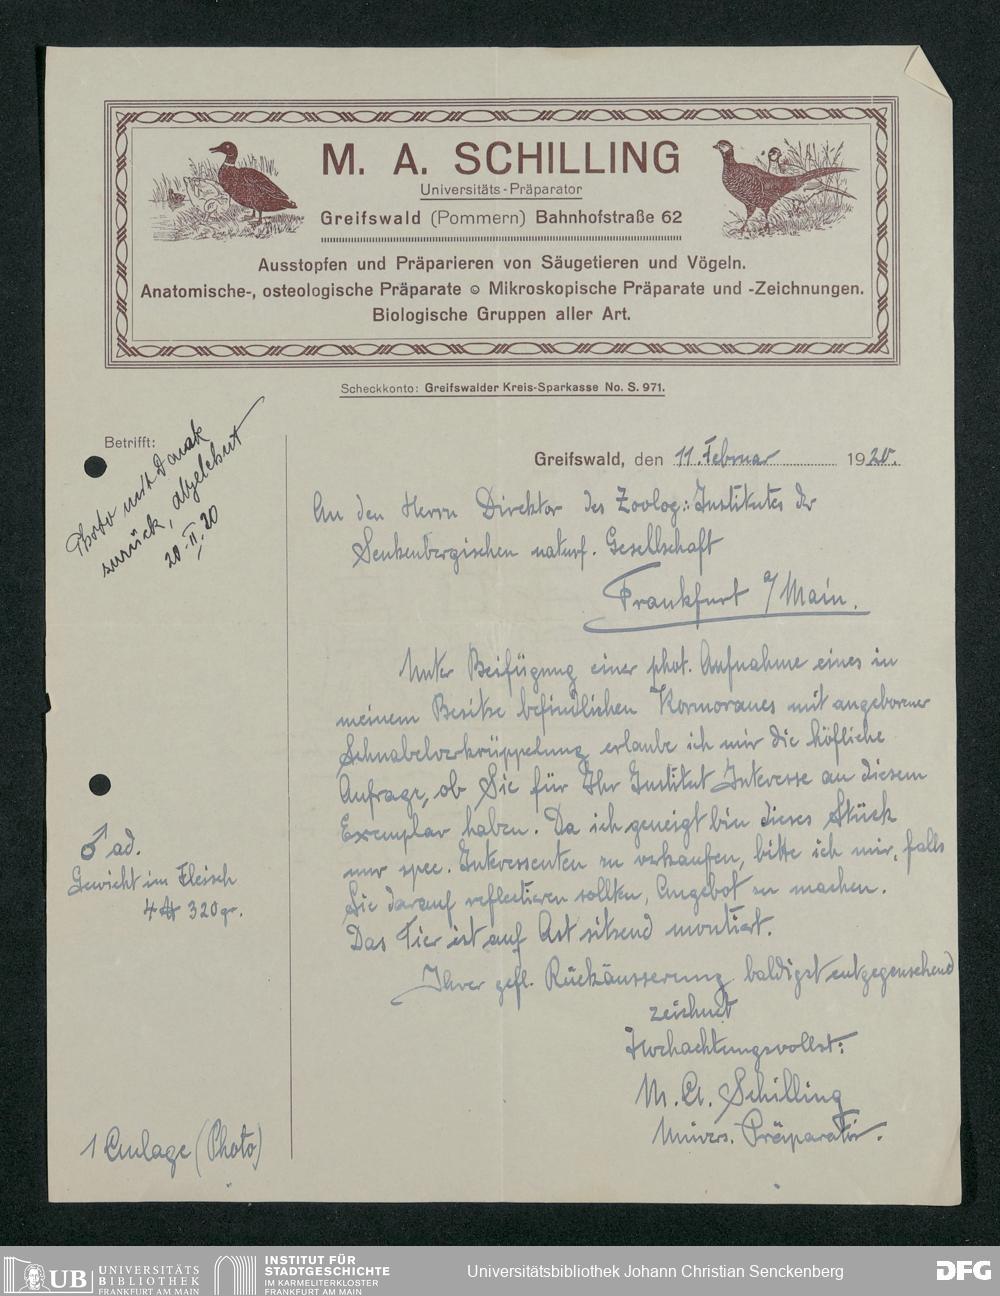 M. A. SCHILLING
Universitäts-Präparator
Greifswald (Pommern) Bahnhofstraße 62
Ausstopfen und Präparieren von Säugetieren und Vögeln.
Anatomische-, osteologische Präparate ⊙ Mikroskopische Präparate und -Zeichnungen.
Biologische Gruppen aller Art.
Scheckkonto: Greifswalder Kreis-Sparkasse No. S. 971.
Betrifft:
Photo mit Dank
zurück, abgelehnt
20.II.20
Greifswald, den 11. Februar 1920.
An den Herrn Direktor des Zoolog: Institutes der
Senkenbergischen naturf. Gesellschaft
Frankfurt a/Main.
Unter Beifügung einer phot. Aufnahme eines in
meinem Besitze befindlichen Kormoranes mit angeborener
Schnabelverkrüppelung erlaube ich mir die höfliche
Anfrage, ob Sie für Ihr Institut Interesse an diesem
Exemplar haben. Da ich geneigt bin dieses Stück
nur spec. Interessenten zu verkaufen, bitte ich mir, falls
Sie darauf reflectieren sollten, Angebot zu machen.
Das Tier ist auf Ast sitzend montiert.
Ihrer gefl. Rückäusserung baldigst entgegensehend
zeichnet
Hochachtungsvollst:
M. A. Schilling
Univers. Präparator.
♂ ad.
Gewicht im Fleisch
4 ℔ 320 gr.
1 Einlage (Photo)
UB UNIVERSITÄTS
BIBLIOTHEK
FRANKFURT AM MAIN
INSTITUT FÜR
STADTGESCHICHTE
IM KARMELITERKLOSTER
FRANKFURT AM MAIN
Universitätsbibliothek Johann Christian Senckenberg
DFG